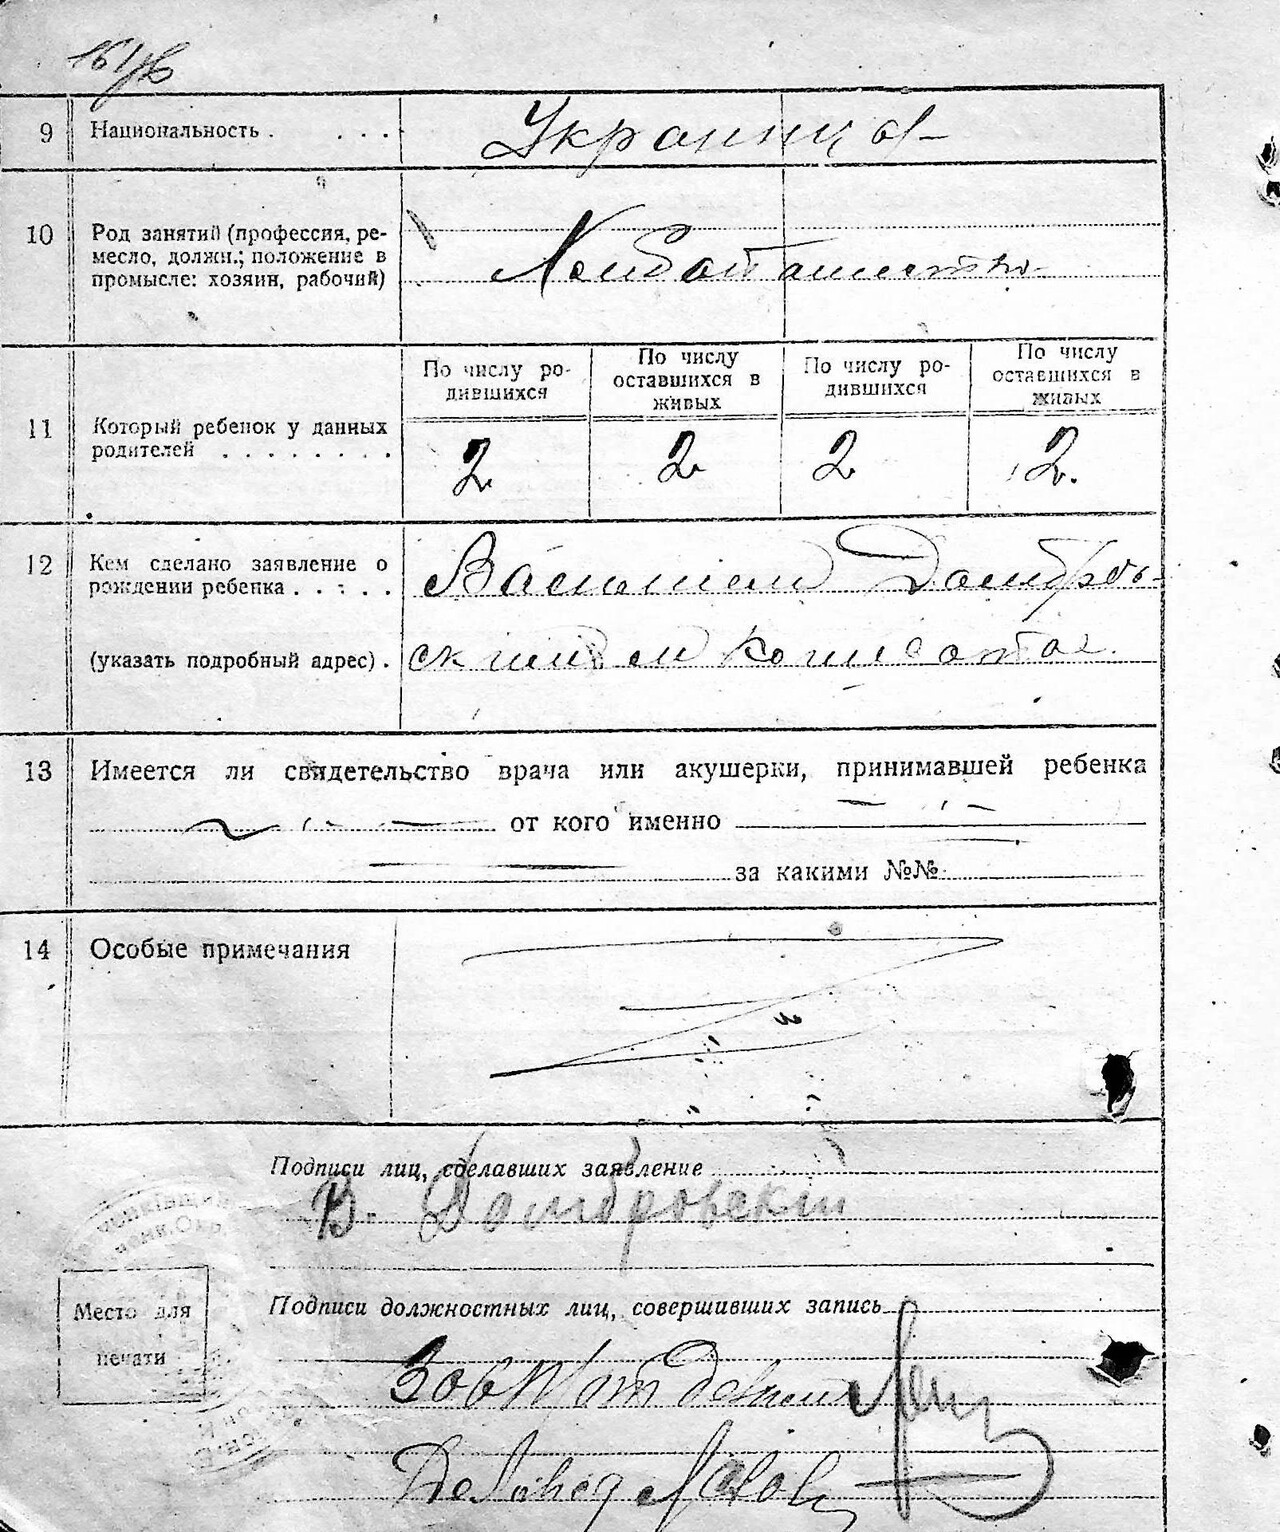 9 Национальность . . . . Украинцы
10 Род занятий (профессия, ре-
месло, должн.; положение в
промысле: хозяин, рабочий)
11 Который ребенок у данных
родителей . . . . . . . .
По числу ро-
дившихся
По числу
оставшихся в
живых
По числу ро-
дившихся
По числу
оставшихся в
живых
2 2 2 2.
12 Кем сделано заявление о
рождении ребенка . . . . .
(указать подробный адрес) .
Василием Домбров-
ским
13 Имеется ли свидетельство врача или акушерки, принимавшей ребенка
от кого именно
за какими №№
14 Особые примечания
Подписи лиц, сделавших заявление
В. Домбровский
Место для
печати
Подписи должностных лиц, совершивших запись